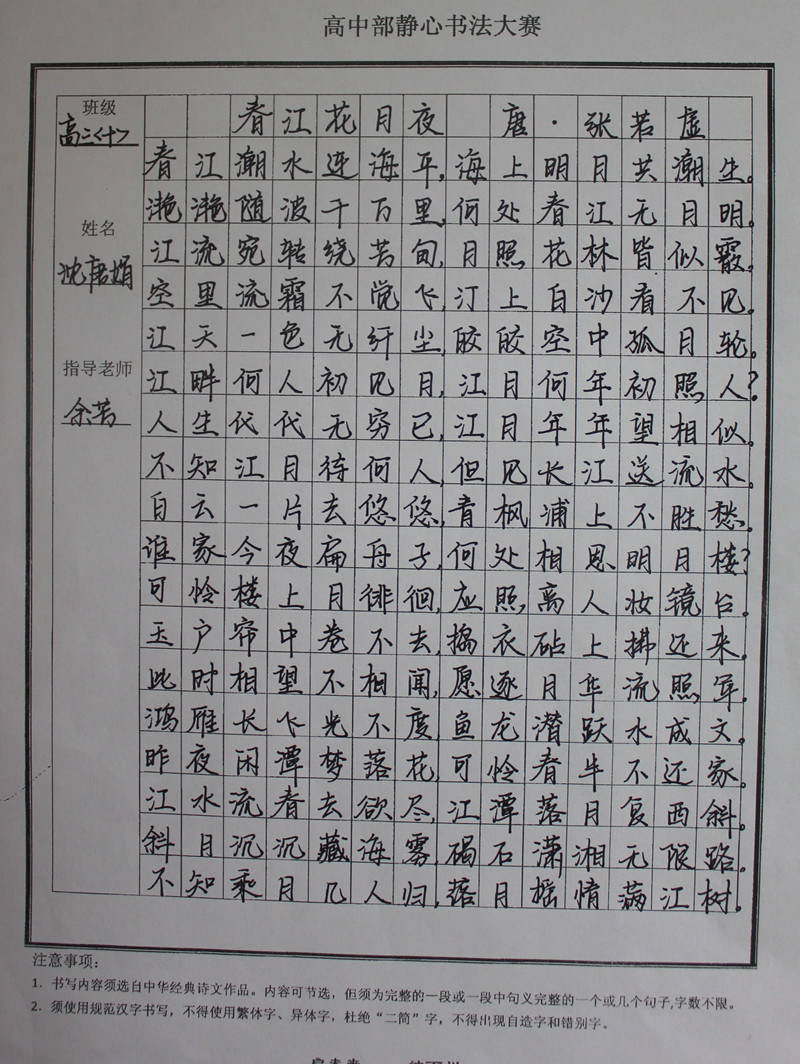 高中部静心书法大赛
班级
高二〈十〉
姓名
沈唐娟
指导老师
余芳
春江花月夜 唐·张若虚
春江潮水连海平,海上明月共潮生。
滟滟随波千万里,何处春江无月明。
江流宛转绕芳甸,月照花林皆似霰。
空里流霜不觉飞,汀上白沙看不见。
江天一色无纤尘,皎皎空中孤月轮。
江畔何人初见月,江月何年初照人?
人生代代无穷已,江月年年望相似。
不知江月待何人,但见长江送流水。
白云一片去悠悠,青枫浦上不胜愁。
谁家今夜扁舟子,何处相思明月楼?
可怜楼上月徘徊,应照离人妆镜台。
玉户帘中卷不去,捣衣砧上拂还来。
此时相望不相闻,愿逐月华流照军。
鸿雁长飞光不度,鱼龙潜跃水成文。
昨夜闲潭梦落花,可怜春半不还家。
江水流春去欲尽,江潭落月复西斜。
斜月沉沉藏海雾,碣石潇湘无限路。
不知乘月几人归,落月摇情满江树。
注意事项:
1. 书写内容须选自中华经典诗文作品。内容可节选,但须为完整的一段或一段中句义完整的一个或几个句子,字数不限。
2. 须使用规范汉字书写,不得使用繁体字、异体字,杜绝“二简”字,不得出现自造字和错别字。